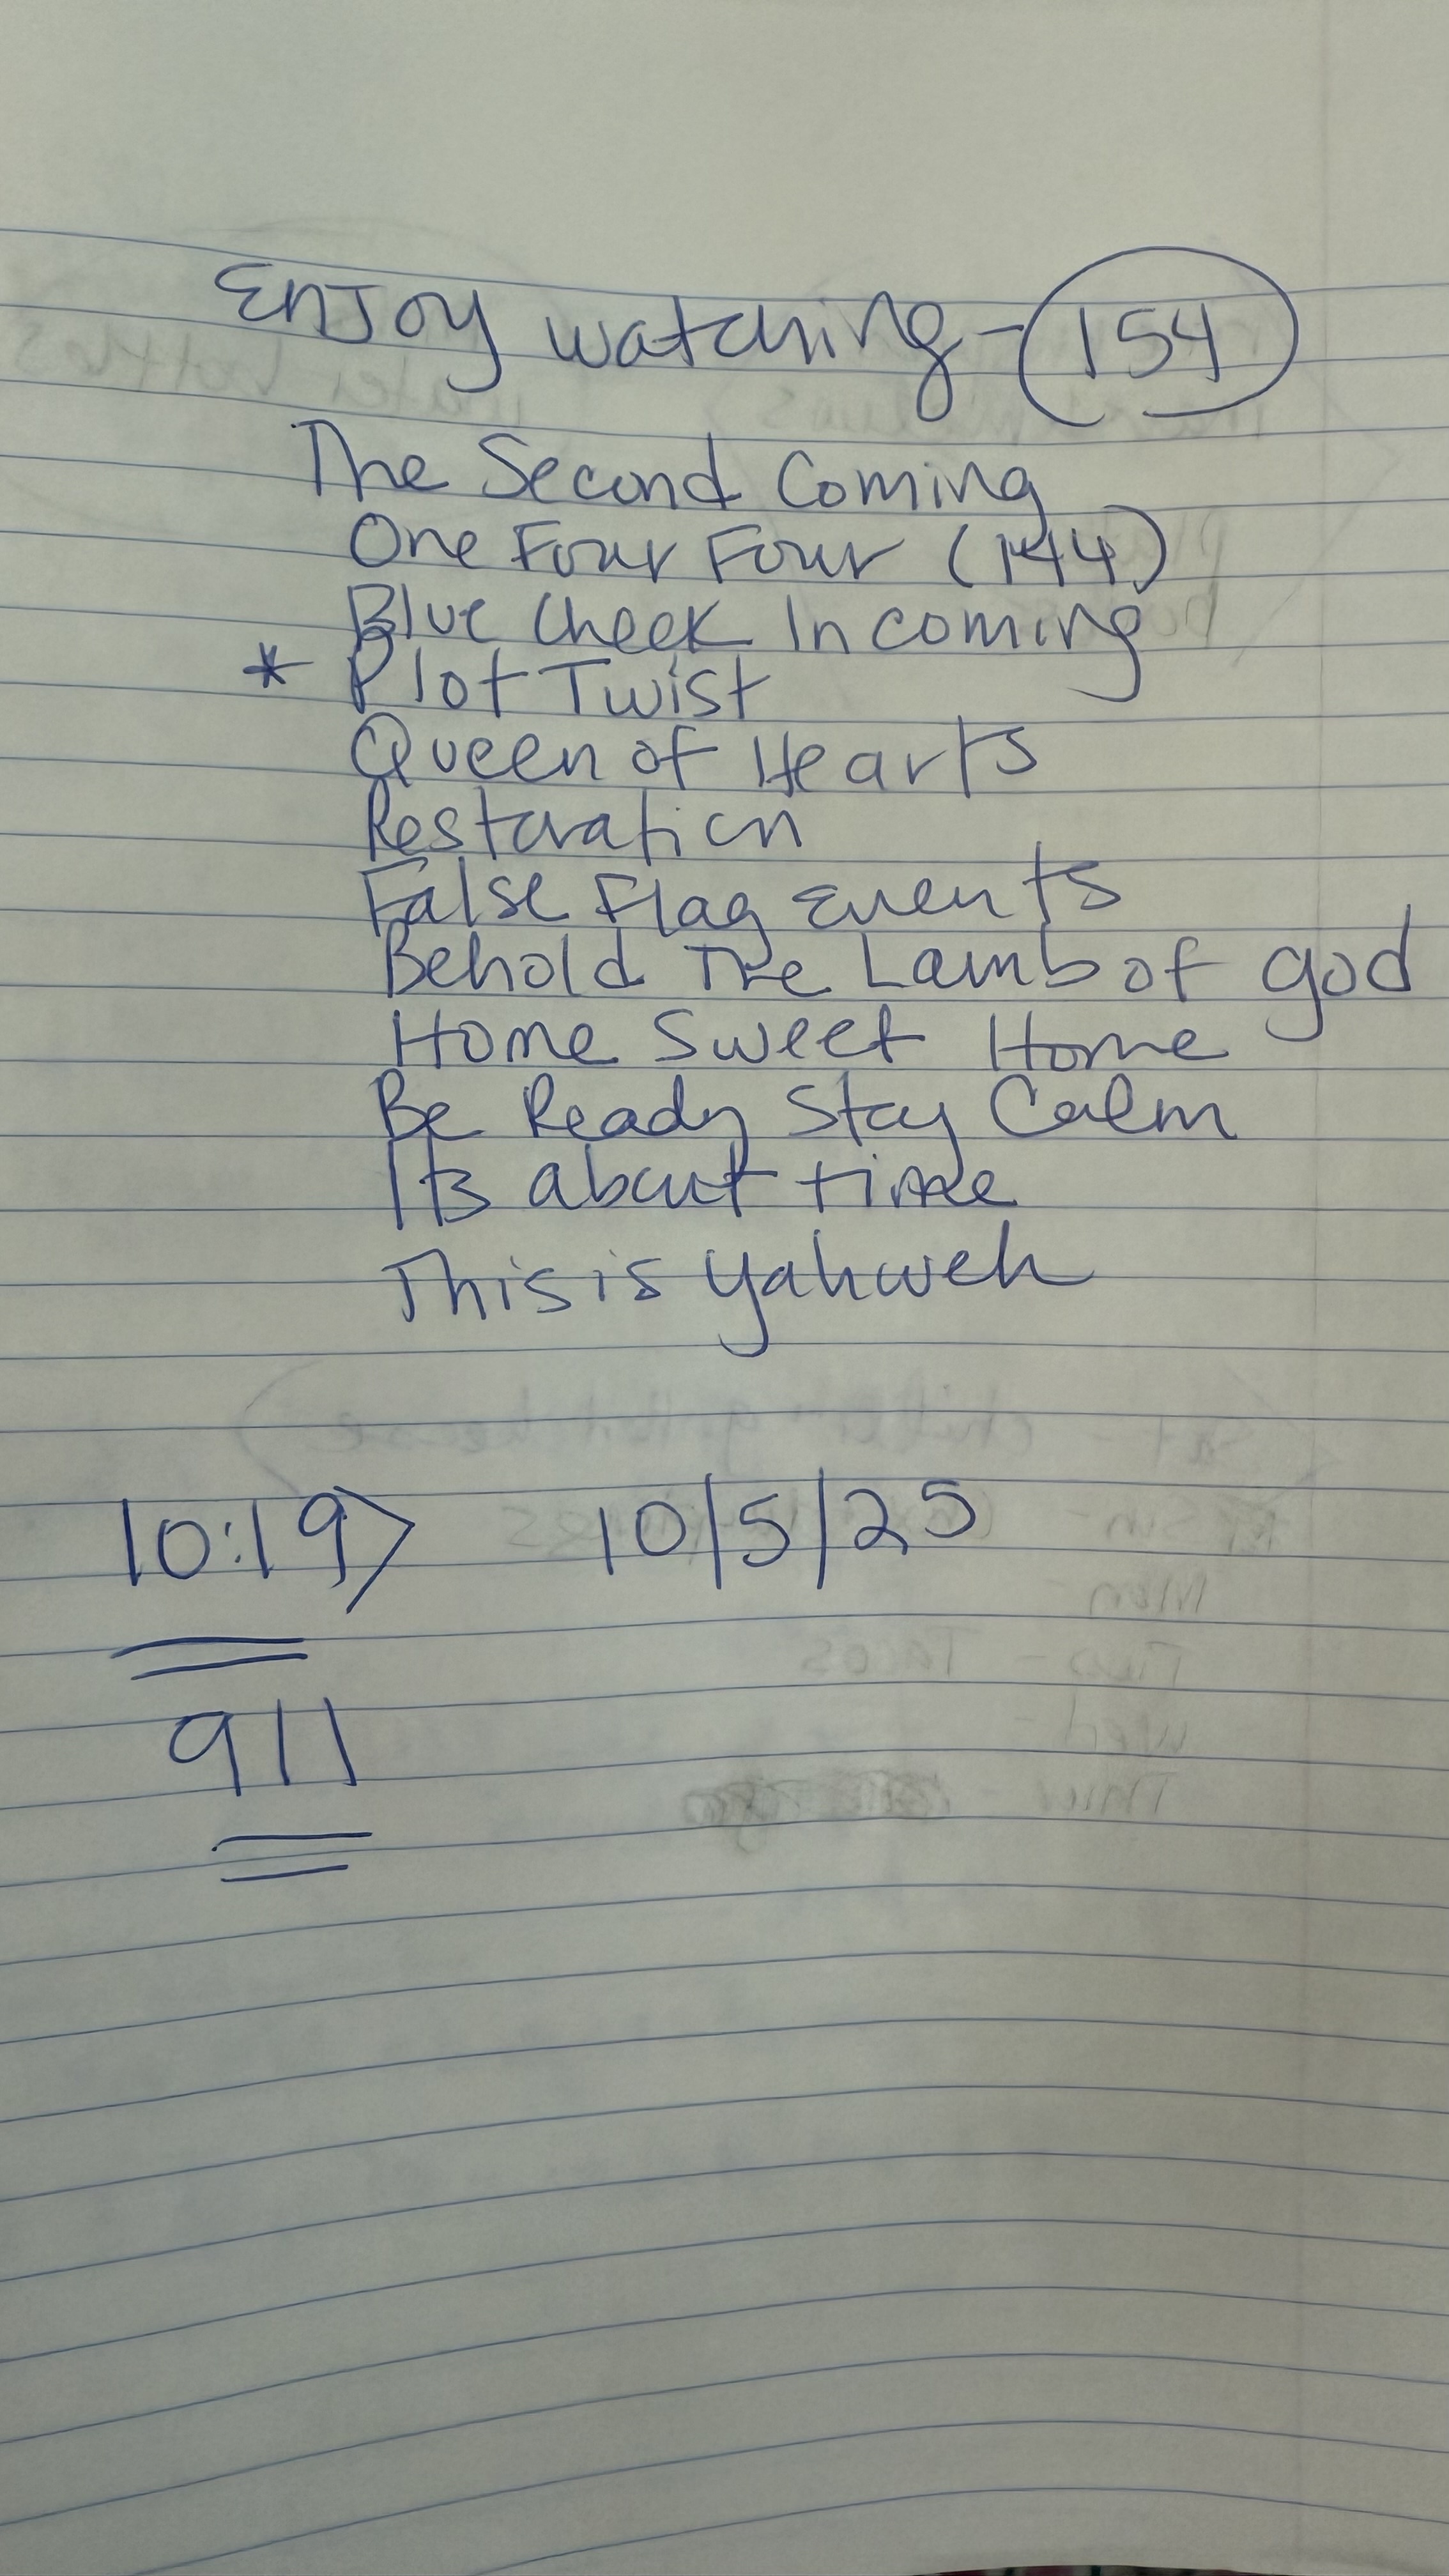 Enjoy watching - 154
The Second Coming
One Four Four (144)
Blue Check Incoming
* Plot Twist
Queen of Hearts
Restoration
False Flag Events
Behold The Lamb of god
Home Sweet Home
Be Ready Stay Calm
Its about time
This is Yahweh
10:19> 10/5/25
911